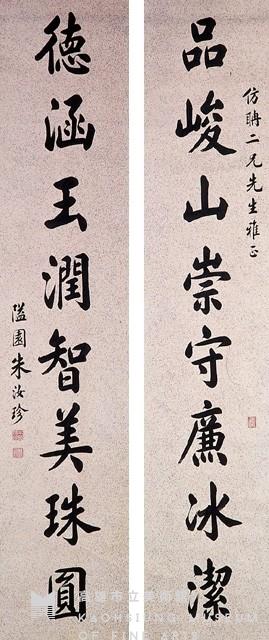 仿聃二兄先生雅正
品峻山崇守廉冰潔
德涵玉潤智美珠圓
隘園朱汝珍
高雄市立美術館
KAOHSIUNG MUSEUM
OF FINE ARTS